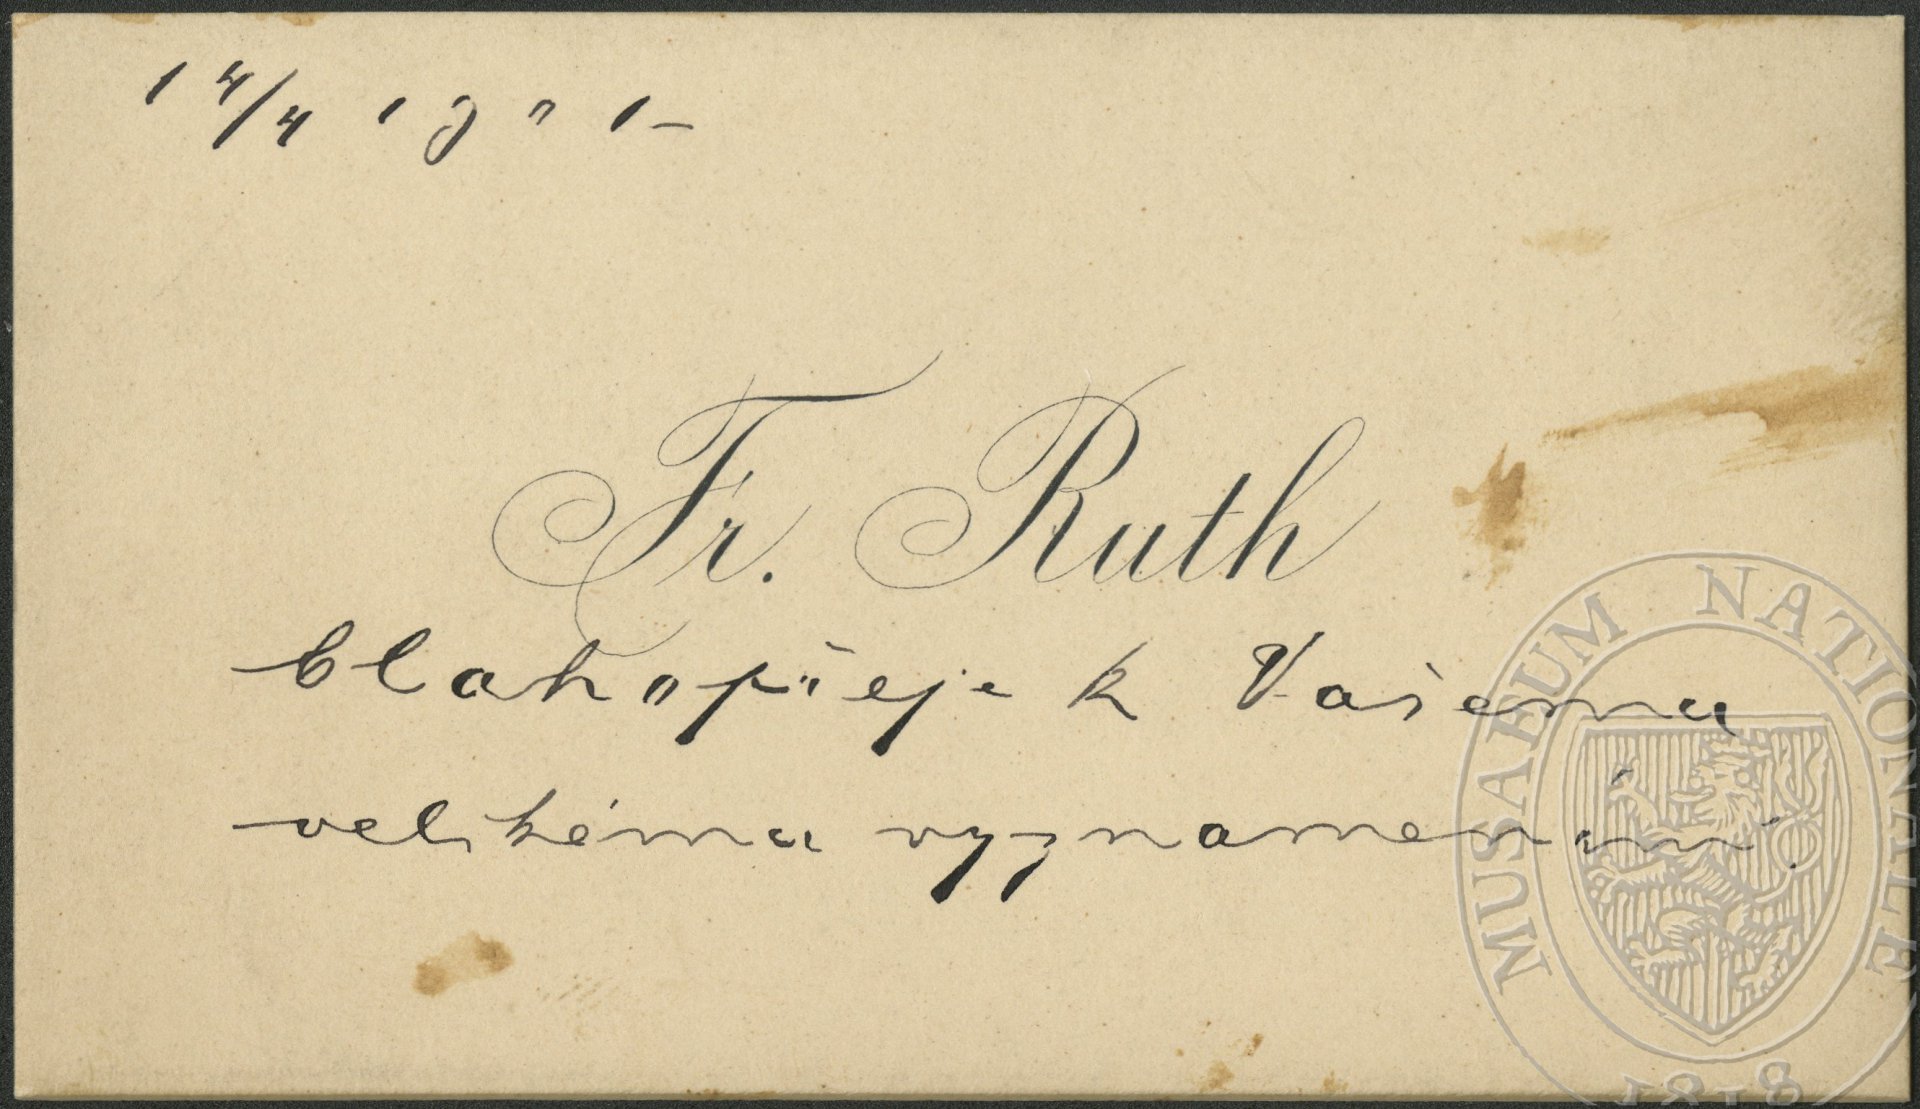 14/4 1901
Fr. Ruth
blahopřeje k Vašemu
velikému vyznamenání.
MUSAEUM NATIONALE
1818